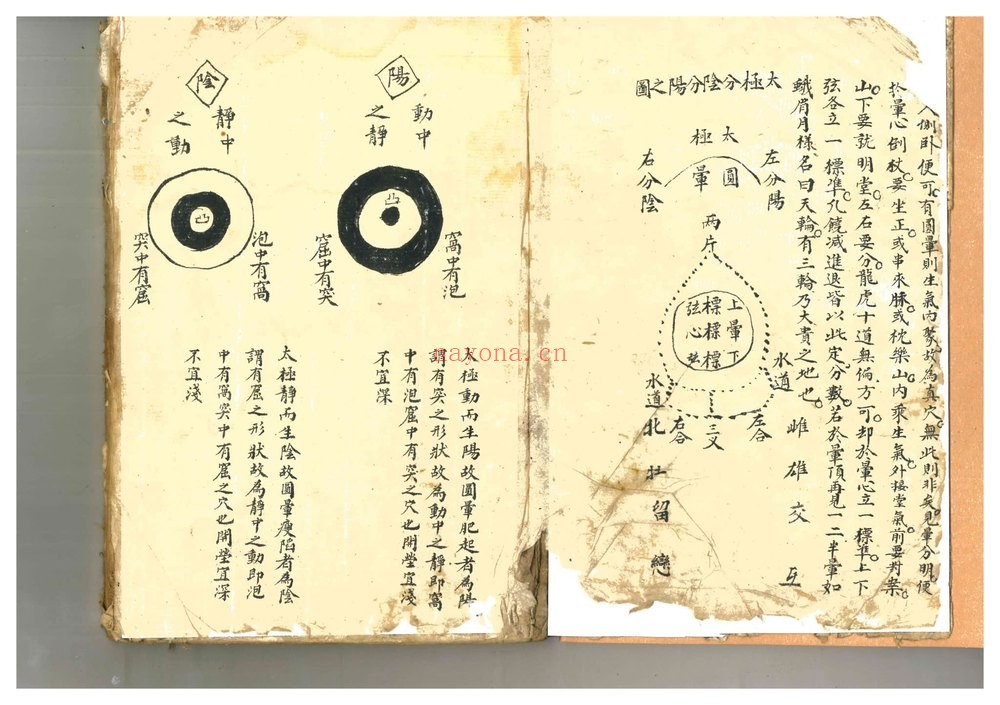 入倒卧便可有圓暈則生氣內聚故為真穴無此則非矣見暈分明便
於暈心倒杖要坐正或串來脉或枕樂山內乘生氣外接堂氣前要對案
山下要就明堂左右要分龍虎十道無偏方可却於暈心立一標準上下
弦各立一標準凡饒减進退皆以此定分數若於暈頂再見一二半暈如
蛾眉月樣名曰天輪有三輪乃大貴之地也
太極分陰分陽之圖
太極
圓暈
左分陽
右分陰
兩片
上暈下
標標標
弦心
水道
水道
左合
右合
三叉
雌雄交互
北牡留戀
陽
動中之靜
凸
窩中有泡
窟中有突
太極動而生陽故圓暈肥起者為陽
謂有突之形狀故為動中之靜即窩
中有泡窟中有突之穴也開塋宜淺
不宜深
陰
靜中之動
凸
泡中有窩
突中有窟
太極靜而生陰故圓暈瘦陷者為陰
謂有窟之形狀故為靜中之動即泡
中有窩突中有窟之穴也開塋宜深
不宜淺
naxona.cn